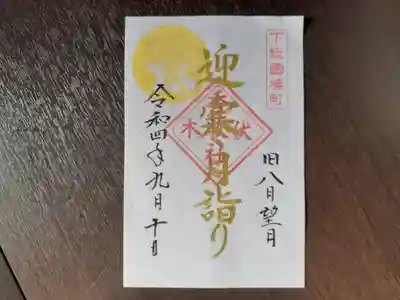 下総國境町
旧八月望月
迎寒月詣り
伏木
令和四年九月十日